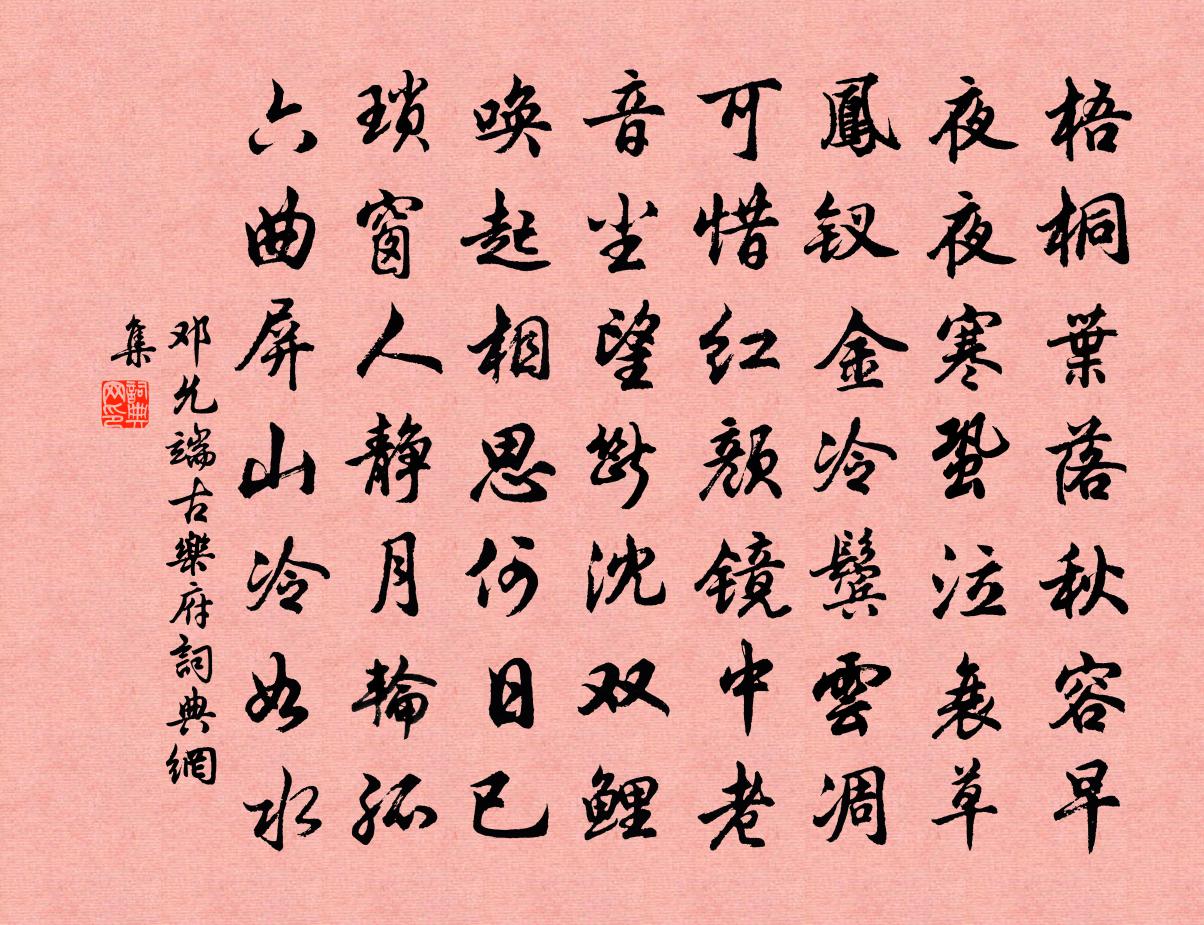 梧桐葉落秋容早
夜夜寒蛩泣衰草
鳳钗金冷鬓雲凋
可惜红颜镜中老
音尘望断沈双鲤
唤起相思何日已
琐窗人静月輪孤
六曲屏山冷如水
邓允端古樂府詞典網
集
詞典
网印